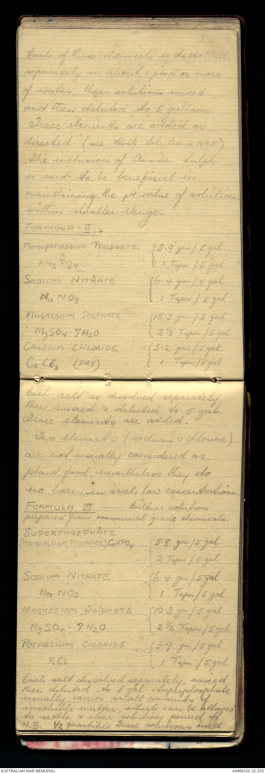 Each of these chemicals is dissolved
separately in about 1 pint or more
of water, then solutions mixed
and then diluted to 5 gallons.
Trace elements are added as
directed (see Stock Solutions
The inclusion of Ammon. Sulph
is said to be beneficial in
maintaining the pH value of solutions
within smaller range.
FORMULA - II.
MONOPOTASSIUM PHOSPHATE {5.9 gm / 5 gal
KH2 PO4 1 Tspn / 5 gal
SODIUM NITRATE {6.4 gm / 5 gal
Na NO3 1 Tspn / 5 gal
MAGNESIUM SULPHATE {10.3 gm / 5 gal
MgSO4 · 7H2O 2½ Tspn / 5 gal
CALCIUM CHLORIDE {3.2 gm / 5 gal
CaCl2 (DRY) 1 Tspn / 5 gal
Each salt is dissolved separately,
then mixed & diluted to 5 gal.
Trace elements are added.
Two elements (sodium & chlorine)
are not usually considered as
plant food nevertheless they do
no harm in such low concentrations.
FORMULA III Culture solution
prepared from commercial grade chemicals.
SUPERPHOSPHATE
CaHPO4 {5.8 gm / 5 gal
2 Tspn / 5 gal
SODIUM NITRATE {6.4 gm / 5 gal
Na NO3 1 Tspn / 5 gal
MAGNESIUM SULPHATE {10.3 gm / 5 gal
MgSO4 · 7H2O 2½ Tspn / 5 gal
POTASSIUM CHLORIDE {3.9 gm / 5 gal
KCL 1 Tspn / 5 gal
Each salt dissolved separately, mixed
then diluted to 5 gal. Superphosphate
usually carries small amounts of
insoluble matter, which can be allowed
to settle & clear solution poured off
N.B. ¼ quantities Trace solutions used
AUSTRALIAN WAR MEMORIAL